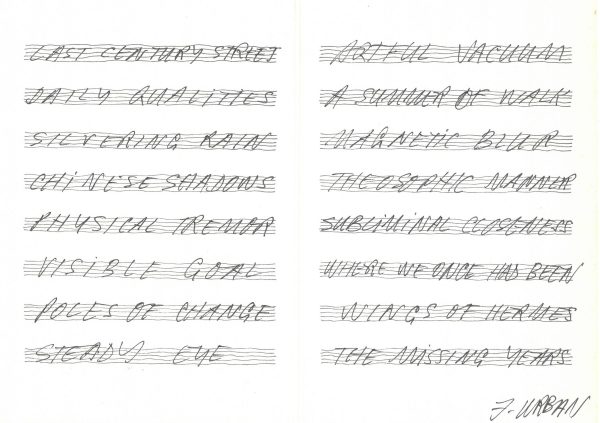 LAST CENTURY STREET
DAILY QUALITIES
SILVERING RAIN
CHINESE SHADOWS
PHYSICAL TREMOR
VISIBLE GOAL
POLES OF CHANGE
STEADY EYE
ARTFUL VACUUM
A SUMMER OF WALK
MAGNETIC BLUR
THEOSOPHIC MANNER
SUBLIMINAL CLOSENESS
WHERE WE ONCE HAD BEEN
WINGS OF HERMES
THE MISSING YEARS
J-URBAN